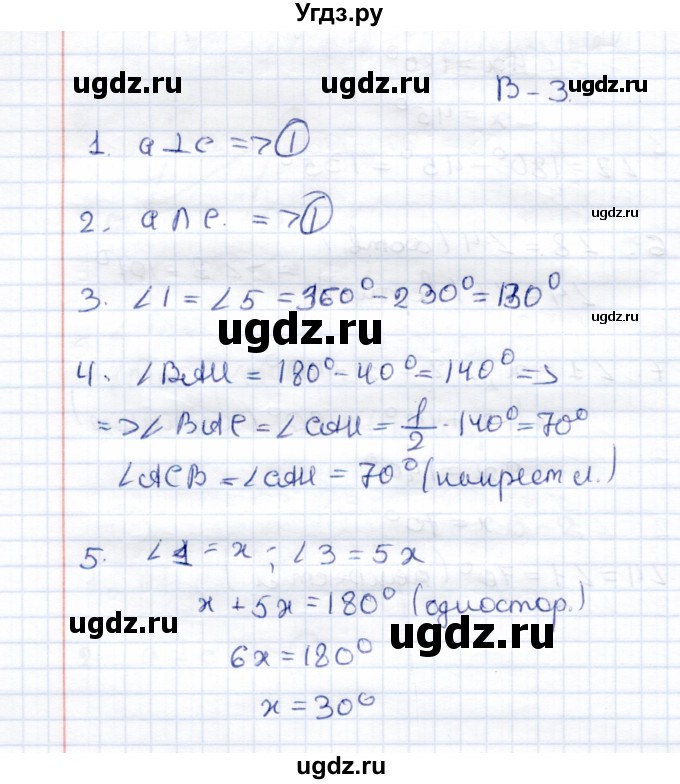 Угдз.ру
ugdz.ru ugdz.ru В - 3.
1. a⊥c => ①
ugdz.ru
2. a∩c. => ①
3. ∠1 = ∠5 = 360° - 230° = 130°
ugdz.ru
4. ∠BAM = 180° - 40° = 140° =>
=> ∠BAC = ∠CAM = 1/2 · 140° = 70°
∠ACB = ∠CAM = 70° (накрест л.)
ugdz.ru
5. ∠1 = x ; ∠3 = 5x
x + 5x = 180° (одностор.)
ugdz.ru ugdz.ru
6x = 180°
x = 30°
ugdz.ru
ugdz.ru